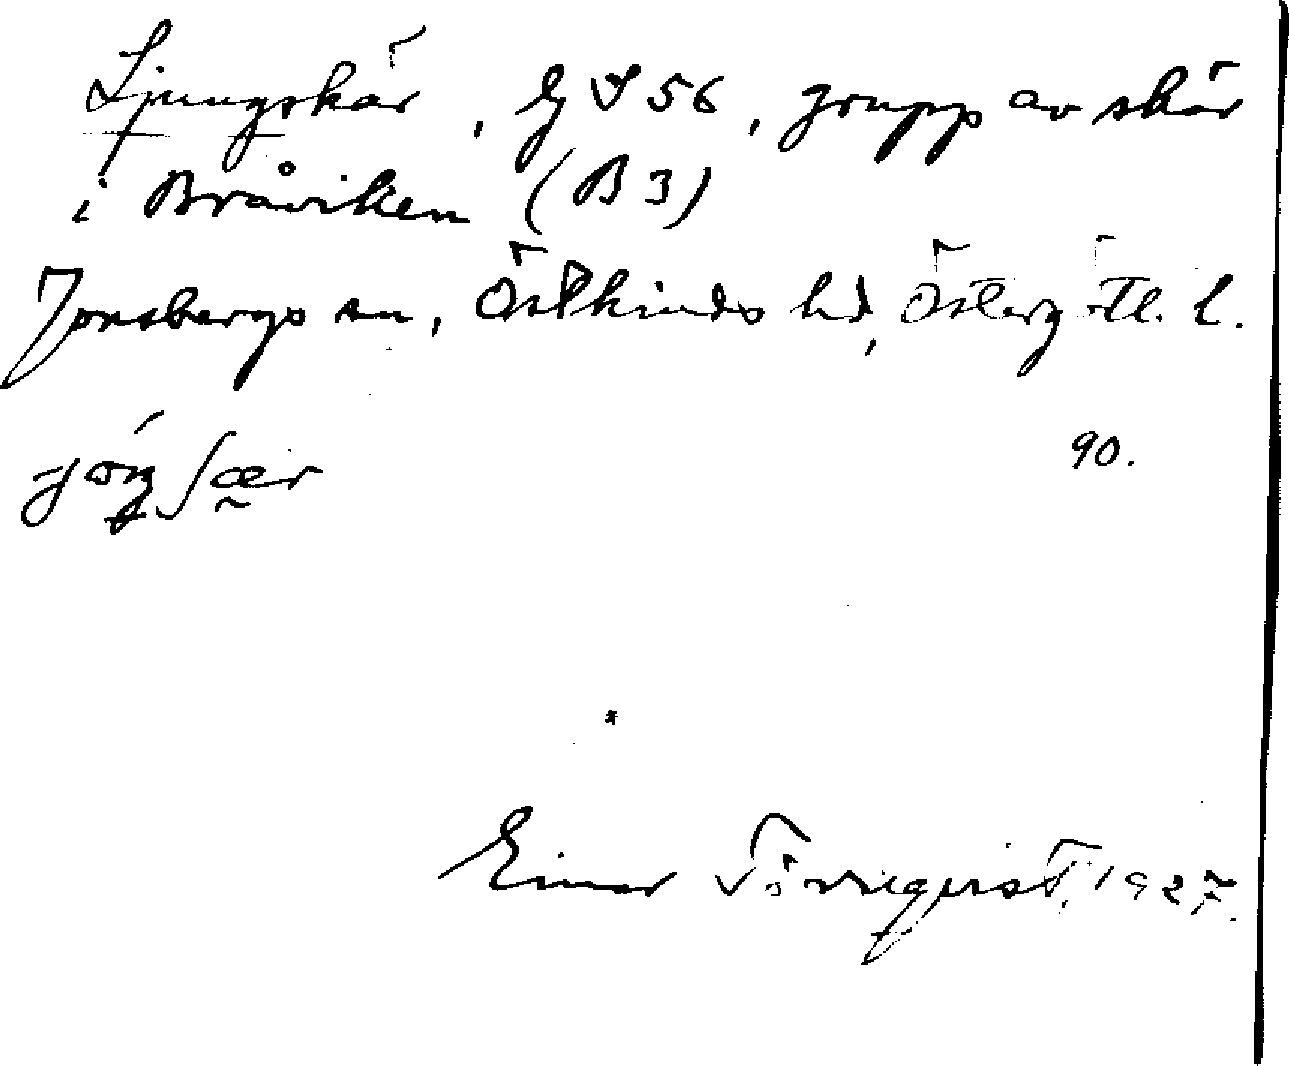 Ljungskär, Gj S 56, grupp av skär
i Bråviken (B 3)
Jonsbergs sn, Östkinds hd, Östergötl. l.
90.
Einar Törnqvist, 1927.